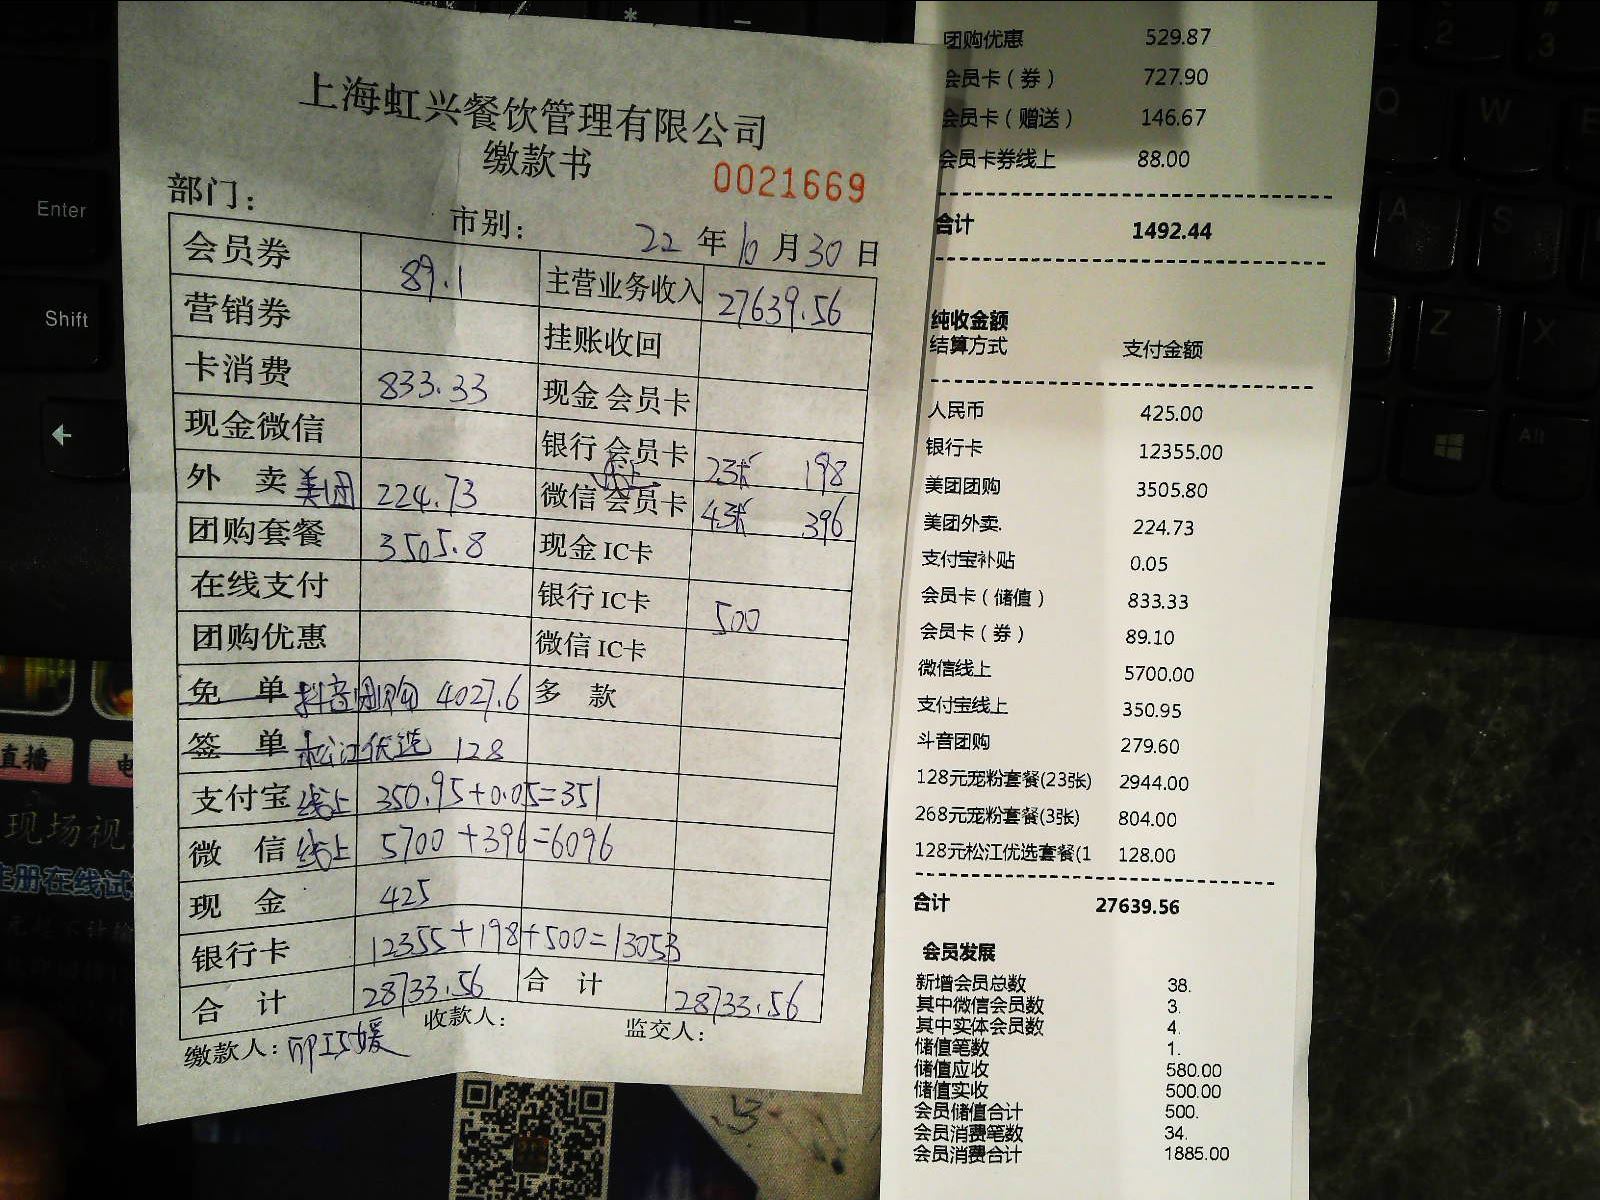 上海虹兴餐饮管理有限公司
缴款书
0021669
部门：
市别：
22 年 10 月 30 日
会员券 89.1 主营业务收入 27639.56
营销券 挂账收回
卡消费 833.33 现金 会员卡
现金微信 银行 会员卡 2张 198
外 卖 美团 224.73 微信 线上 会员卡 4张 396
团购套餐 3505.8 现金 IC卡
在线支付 银行 IC卡 500
团购优惠 微信 IC卡
免 单 抖音团购 4027.6 多 款
签 单 松江优选 128
支付宝 线上 350.95+0.05=351
微 信 线上 5700+396=6096
现 金 425
银行卡 12355+198+500=13053
合 计 28733.56 合 计 28733.56
缴款人：
收款人：
监交人：
团购优惠 529.87
会员卡（券） 727.90
会员卡（赠送） 146.67
会员卡券线上 88.00
合计 1492.44
纯收金额
结算方式 支付金额
人民币 425.00
银行卡 12355.00
美团团购 3505.80
美团外卖. 224.73
支付宝补贴 0.05
会员卡（储值） 833.33
会员卡（券） 89.10
微信线上 5700.00
支付宝线上 350.95
斗音团购 279.60
128元宠粉套餐(23张) 2944.00
268元宠粉套餐(3张) 804.00
128元松江优选套餐(1 128.00
合计 27639.56
会员发展
新增会员总数 38.
其中微信会员数 3.
其中实体会员数 4.
储值笔数 1.
储值应收 580.00
储值实收 500.00
会员储值合计 500.
会员消费笔数 34.
会员消费合计 1885.00
Enter
Shift
Q
W
E
A
S
Z
X
Alt
2
3
直播
现场视
注册在线试